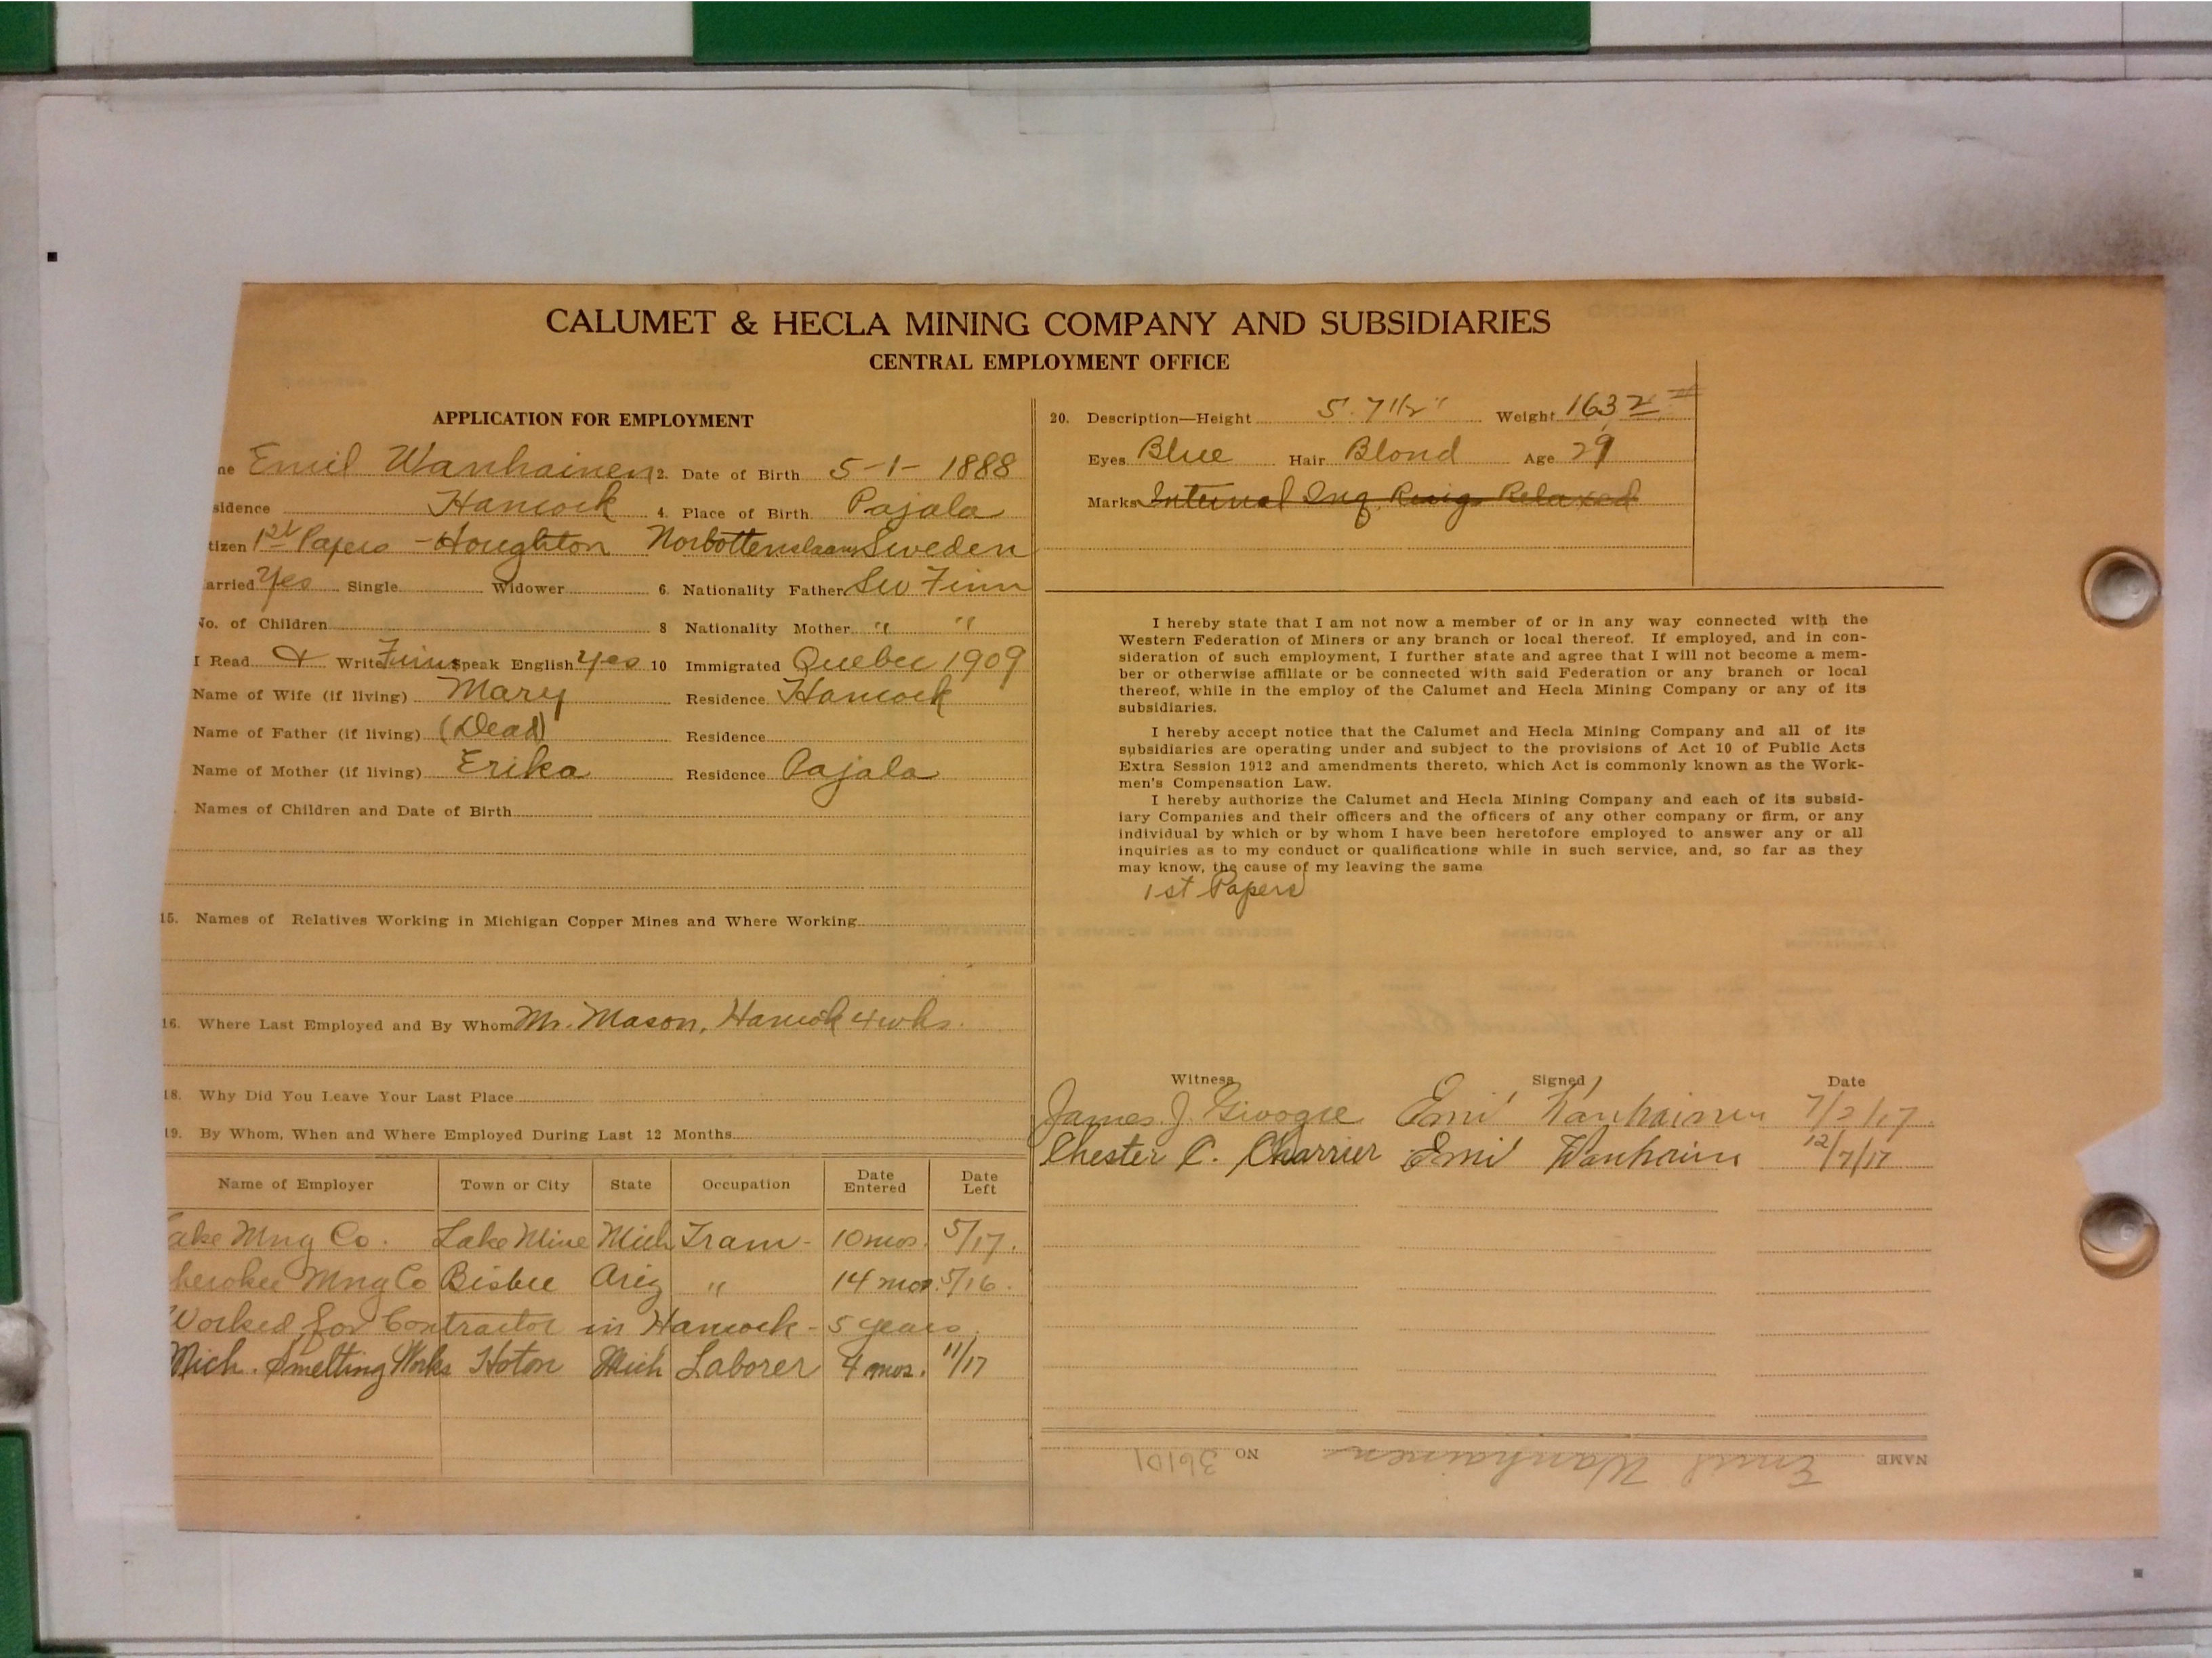 CALUMET & HECLA MINING COMPANY AND SUBSIDIARIES
CENTRAL EMPLOYMENT OFFICE
APPLICATION FOR EMPLOYMENT
ne Emil Wanhainen 2. Date of Birth 5-1-1888
sidence Hancock 4. Place of Birth Pajala
tizen 1st Papers - Houghton Sweden
arried Yes Single Widower 6. Nationality Father Sw Finn
No. of Children 8 Nationality Mother " "
I Read & Write Finn Speak English Yes 10 Immigrated Quebec 1909
Name of Wife (if living) Mary Residence Hancock
Name of Father (if living) (Dead) Residence
Name of Mother (if living) Erika Residence Pajala
Names of Children and Date of Birth
15. Names of Relatives Working in Michigan Copper Mines and Where Working
16. Where Last Employed and By Whom Mr. Mason, Hancock 4 wks.
18. Why Did You Leave Your Last Place
19. By Whom, When and Where Employed During Last 12 Months
Name of Employer Town or City State Occupation Date Entered Date Left
ake Mng Co. Lake Mine Mich Tram - 10 mos. 5/17.
herokee Mng Co Bisbee Ariz " 14 mos. 5/16.
Worked for Contractor in Hancock - 5 years.
Mich. Smelting Works Hoton Mich Laborer 4 mos. 11/17
20. Description—Height 5' 7 1/2" Weight 163
Eyes Blue Hair Blond Age 29
Marks Internal Ing. Rings Relaxed
I hereby state that I am not now a member of or in any way connected with the
Western Federation of Miners or any branch or local thereof. If employed, and in con-
sideration of such employment, I further state and agree that I will not become a mem-
ber or otherwise affiliate or be connected with said Federation or any branch or local
thereof, while in the employ of the Calumet and Hecla Mining Company or any of its
subsidiaries.
I hereby accept notice that the Calumet and Hecla Mining Company and all of its
subsidiaries are operating under and subject to the provisions of Act 10 of Public Acts
Extra Session 1912 and amendments thereto, which Act is commonly known as the Work-
men's Compensation Law.
I hereby authorize the Calumet and Hecla Mining Company and each of its subsid-
iary Companies and their officers and the officers of any other company or firm, or any
individual by which or by whom I have been heretofore employed to answer any or all
inquiries as to my conduct or qualifications while in such service, and, so far as they
may know, the cause of my leaving the same
1st Papers
Witness Signed Date
James J. Emil Wanhainen 7/2/17.
Chester C. Charrier Emil Wanhainen 12/7/17
NAME Emil Wanhainen NO 36101